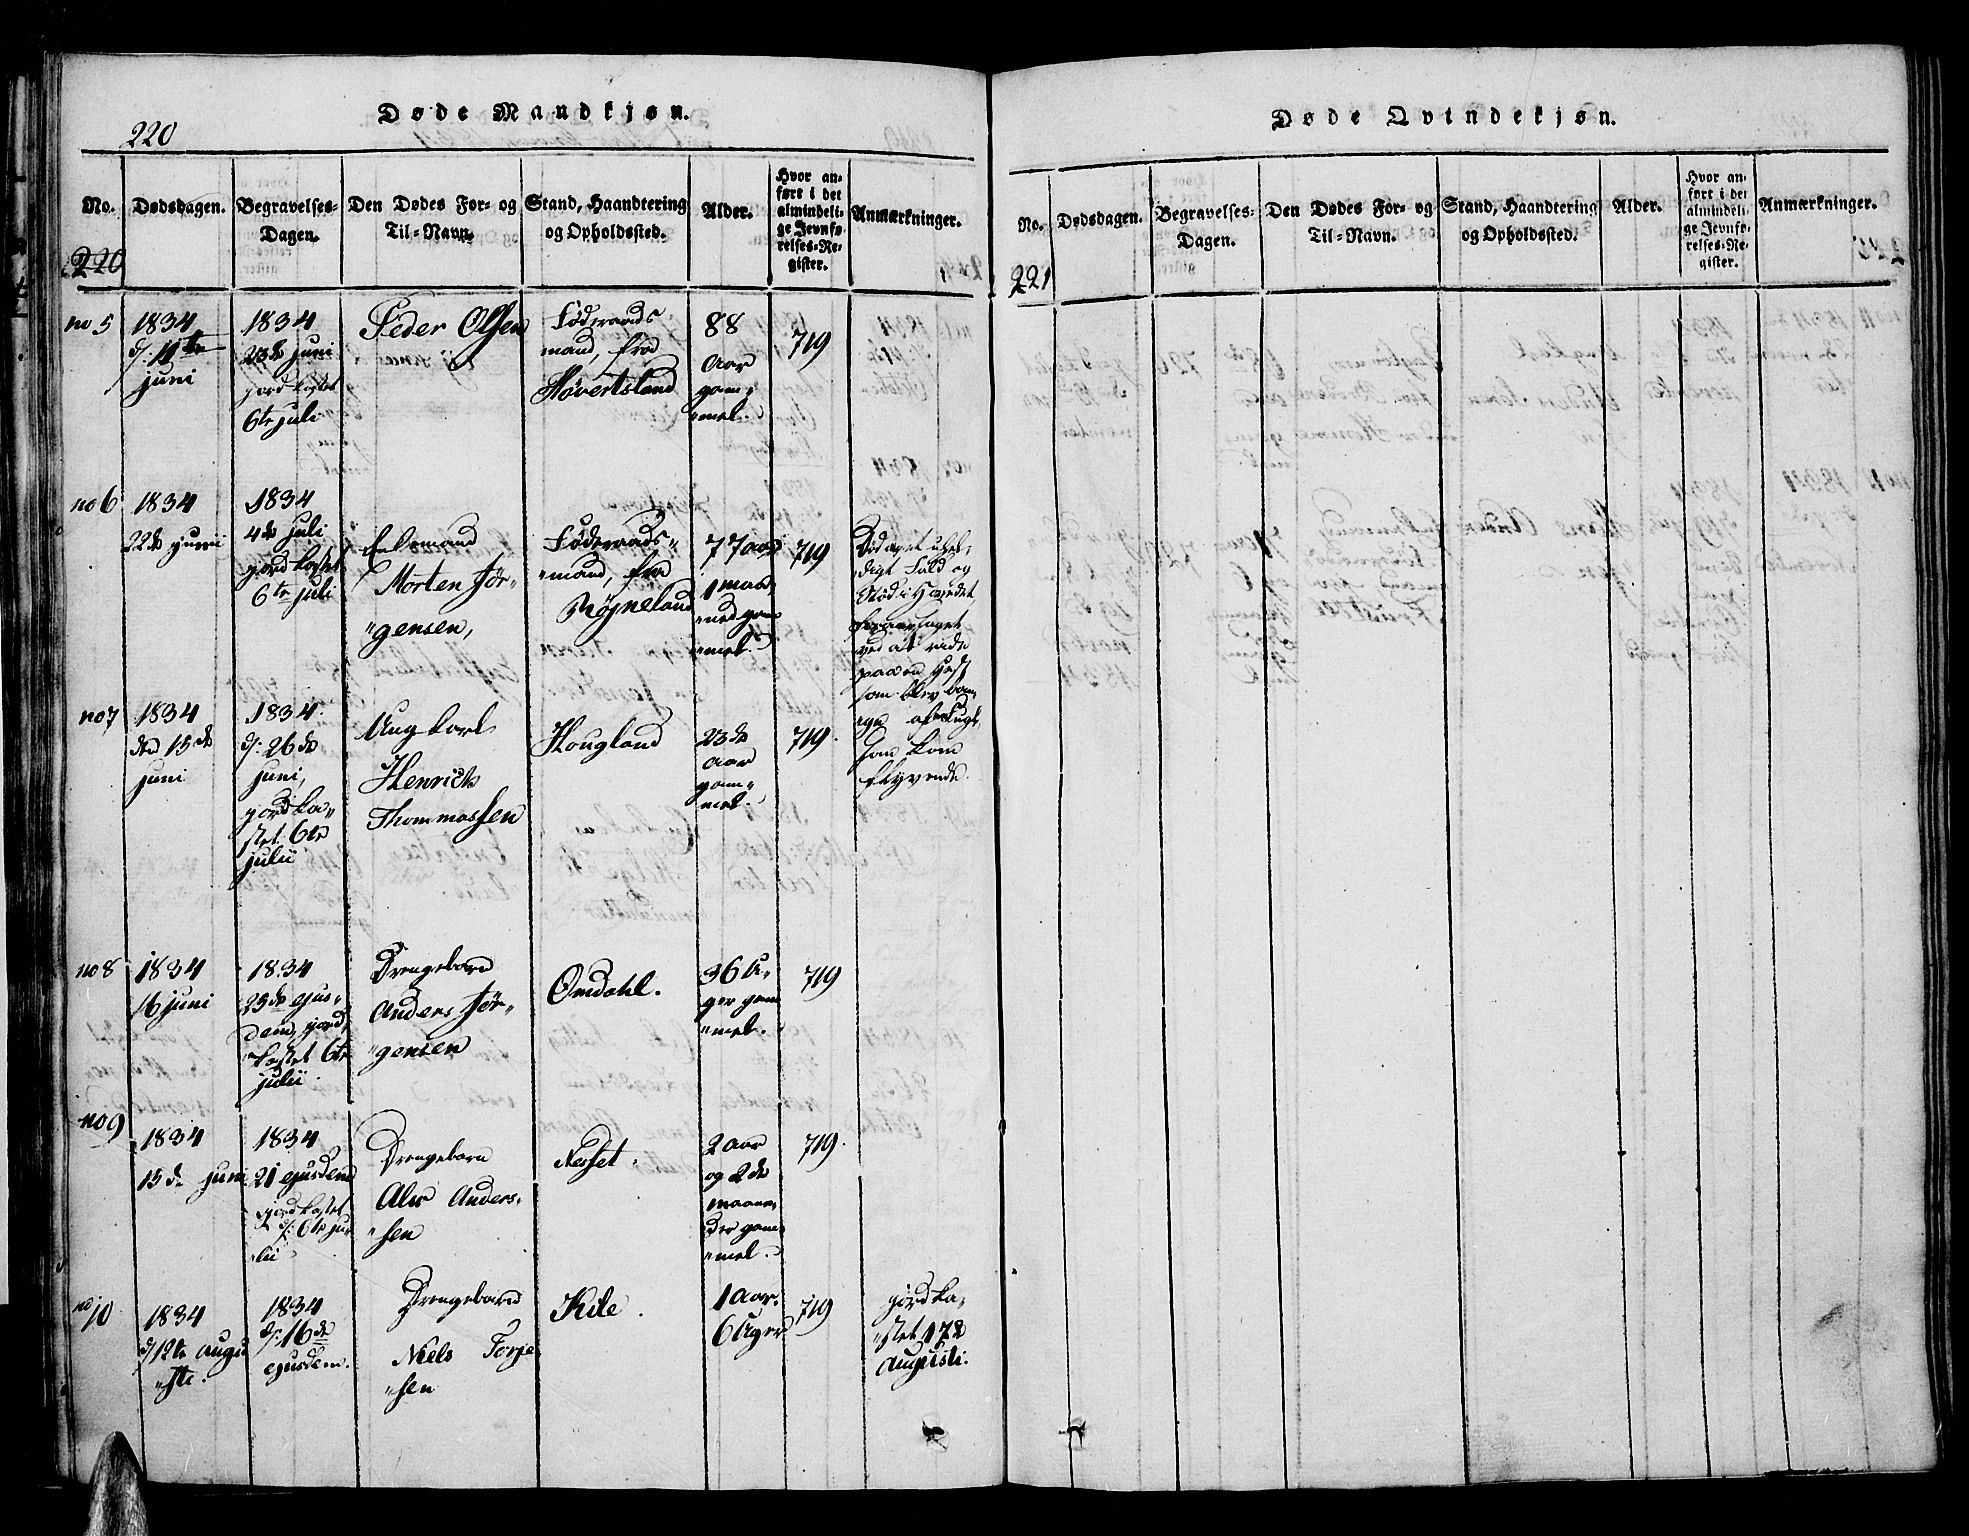 Døde Mandkjøn.
220
No.
Dødsdagen.
Begravelses-
Dagen.
Den Dødes For- og
Til-Navn.
Stand, Haandtering
og Opholdssted.
Alder.
Hvor an-
ført i det
almindeli-
ge Jevnfø-
relses-Re-
gister.
Anmærkninger.
220
no 5
1834
d: 11te
juni
1834
23de juni
jordkastet
6te juli
Peder Olsen
Föderaads
mand, fra
Høvertsland
88
Aar
gam-
"mel.
719
no 6
1834
22de junii
1834
4de juli
jordkastet
6te juli
Enkemand
Morten Jør-
"gensen,
Föderaads-
"mand, fra
Røjneland
77 aar
1 maa-
"ned gam
"mel.
719
Död af et uhel-
digt Fald og
Stöd i Hovedet,
foraarsaget
ved at ride
paa en Hest
som blev ban-
ge af en Fugl,
som kom
flyvende.
no 7
1834
den 15de
juni
1834
d: 26de
juni,
jordka-
stet 6te
julii
Ung Karl
Henrich
Thommassen
Hougland
23de
Aar
gam-
mel.
719.
no 8
1834
16 juni
1834
25de ejus-
dem, jord,
kastet 6te
julii
Drengebarn
Anders Jør-
"gensen
Omdahl.
36 U-
ger gam
"mel.
719
no 9
1834
15de juni
1834
21 ejusdem
jordkastet
d: 6te ju-
"lii
Drengebarn
Alv Anders-
"sen
Nesset.
2 Aar
og 2de
maane-
der gam-
"mel.
719.
no 10
1834
d/12te Augu
"sti.
1834
d: 16de
ejusdem.
Drengebarn
Niels Torje
"sen
Kile.
1 Aar.
6 Uger
719
jordka-
"stet 17de
Augusti.
Døde Qvindekjøn.
No.
Dødsdagen.
Begravelses-
Dagen.
Den Dødes For- og
Til-Navn.
Stand, Haandtering
og Opholdssted.
Alder.
Hvor an-
ført i det
almindeli-
ge Jevnfø-
relses-Re-
gister.
Anmærkninger.
221